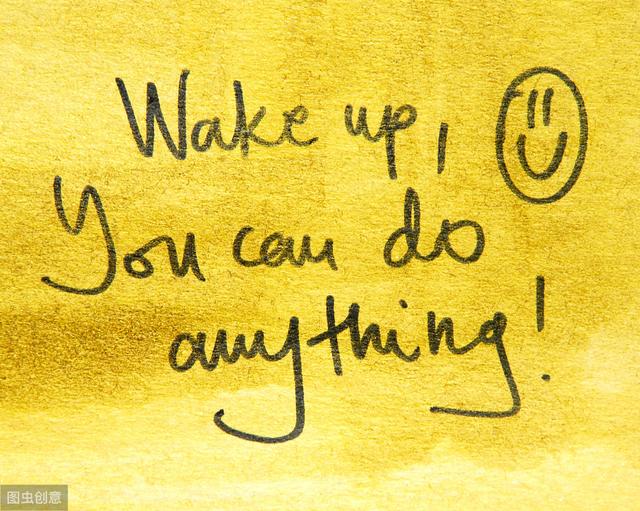 Wake up,
You can do
anything!
图虫创意